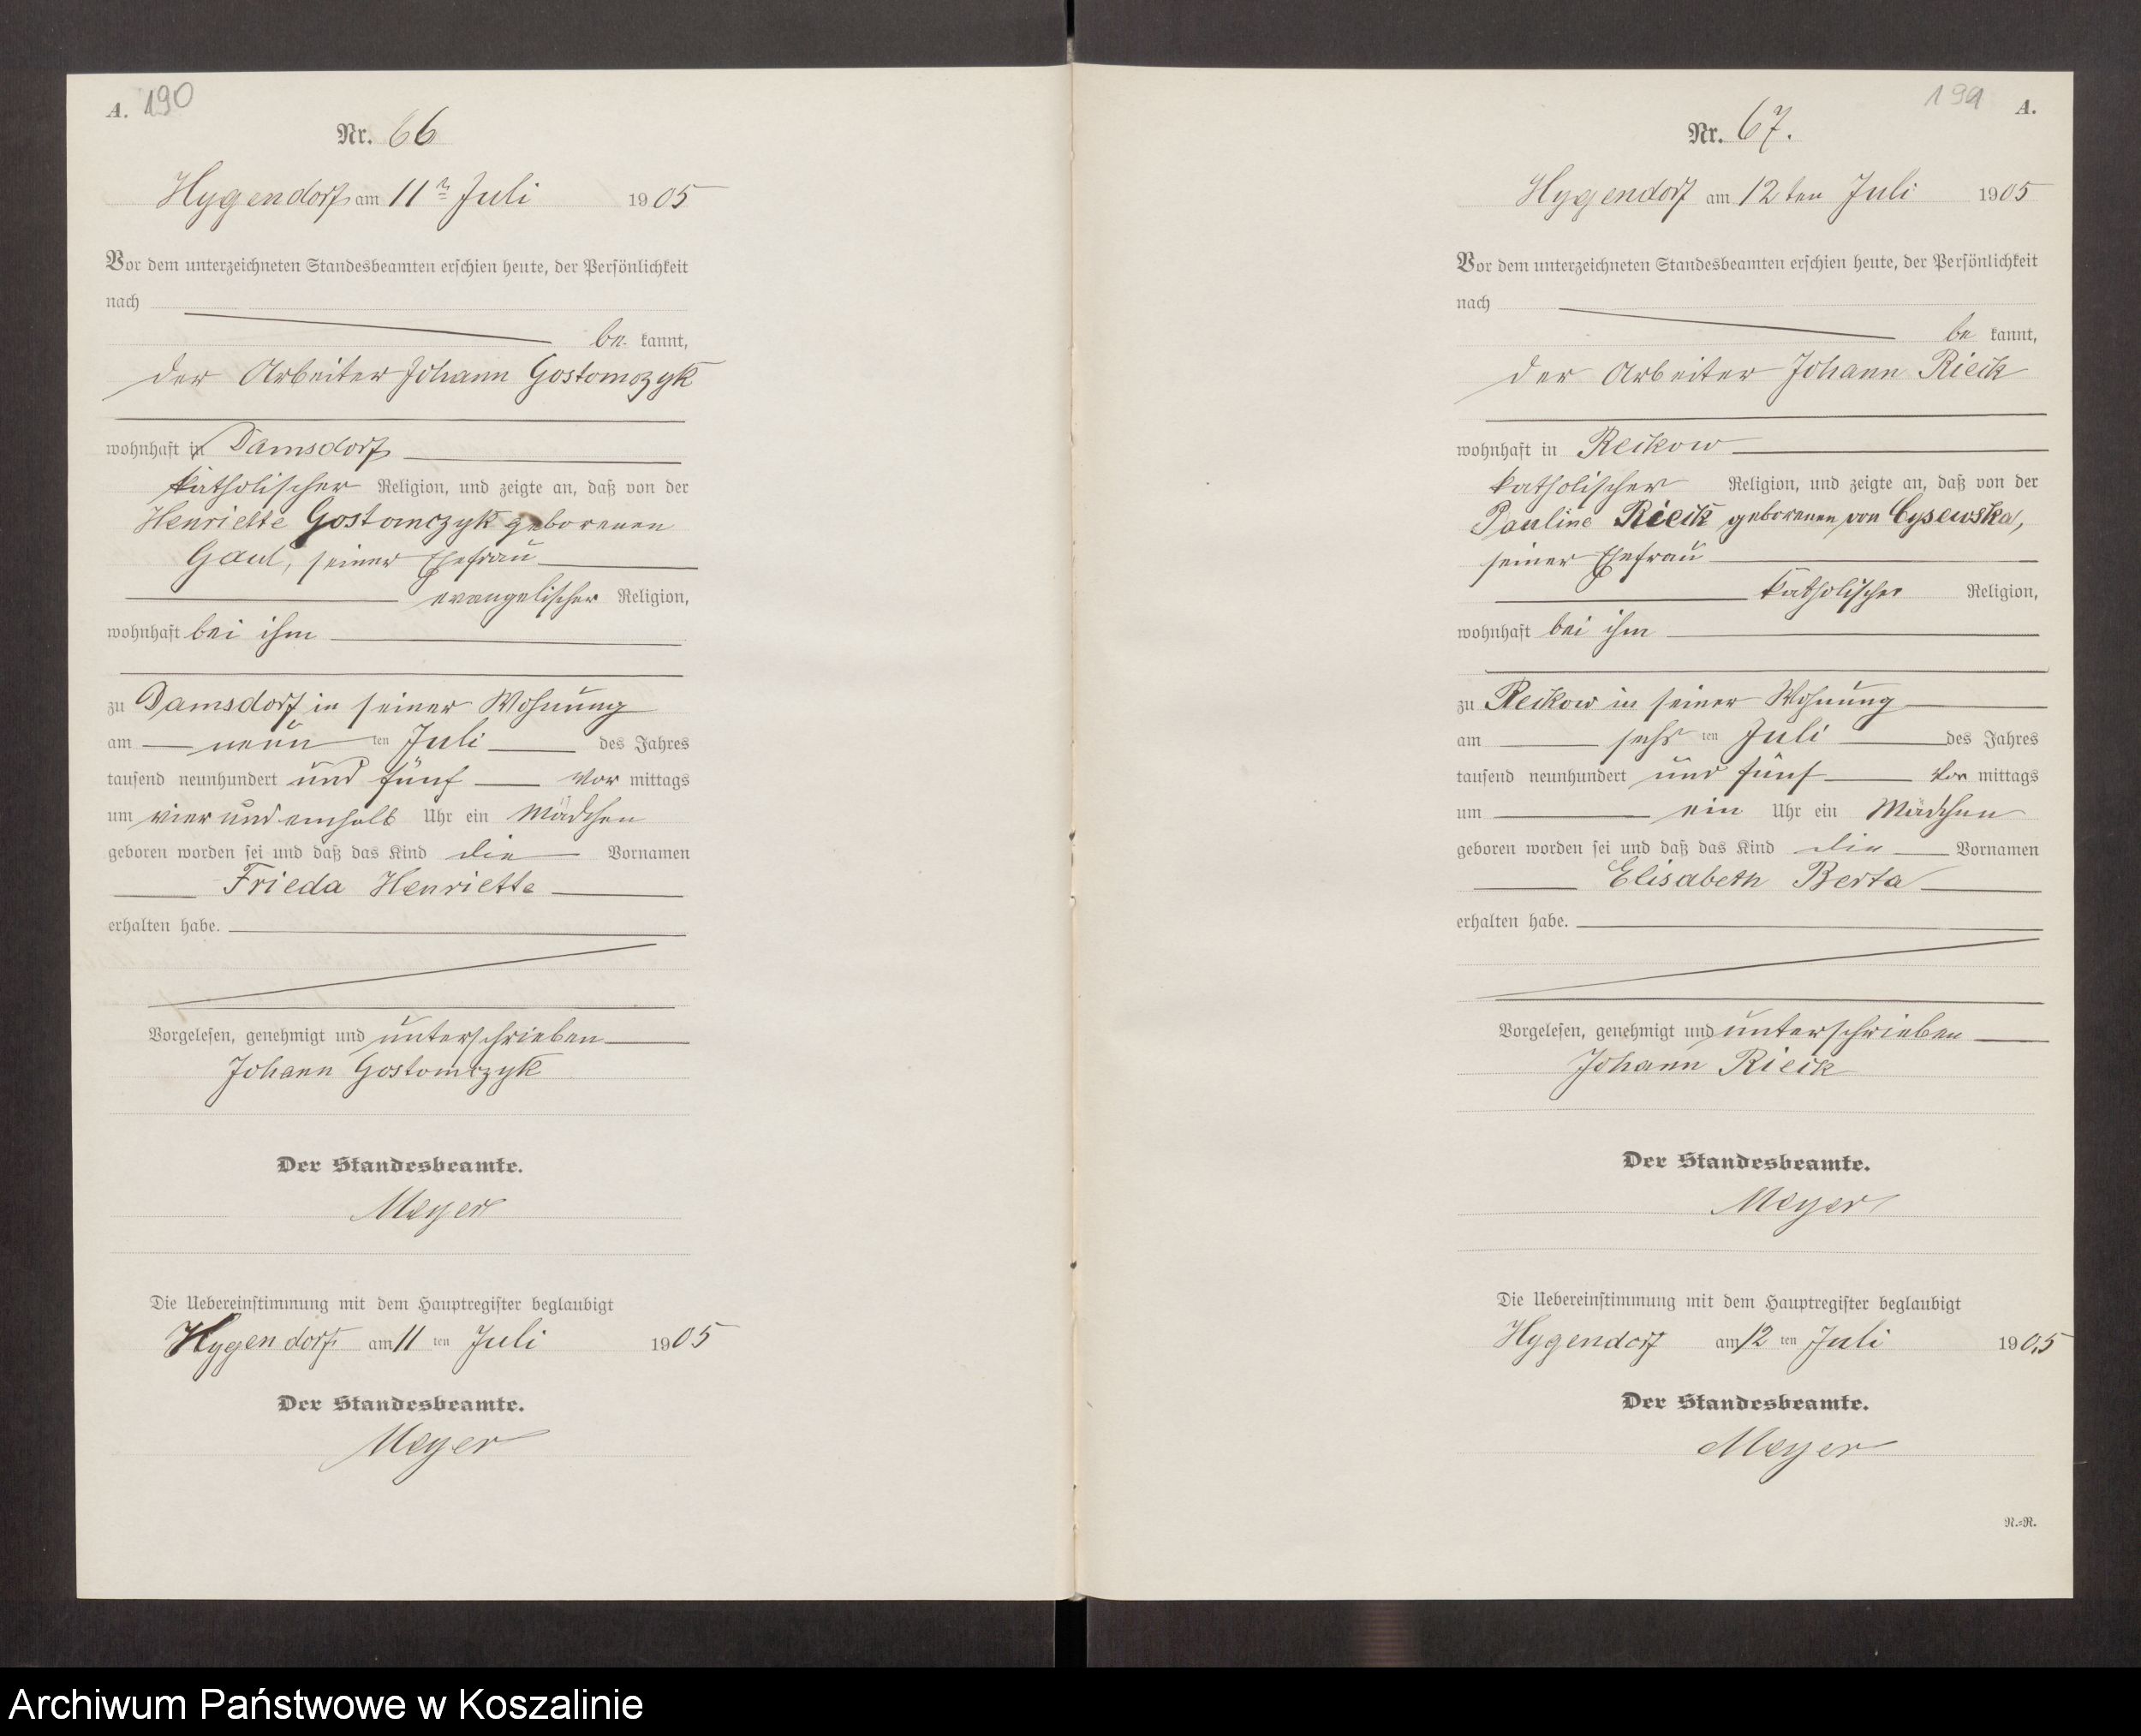 A. 190
Nr. 66
Hygendorf am 11ten Juli 1905
Vor dem unterzeichneten Standesbeamten erschien heute, der Persönlichkeit
nach
be kannt,
der Arbeiter Johann Gostomczyk
wohnhaft in Damsdorf
katholischer Religion, und zeigte an, daß von der
Henriette Gostomczyk geborenen
Gaul, seiner Ehefrau
evangelischer Religion,
wohnhaft bei ihm
zu Damsdorf in seiner Wohnung
am neun ten Juli des Jahres
tausend neunhundert und fünf Vor mittags
um vier und einhalb Uhr ein Mädchen
geboren worden sei und daß das Kind die Vornamen
Frieda Henriette
erhalten habe.
Vorgelesen, genehmigt und unterschrieben
Johann Gostomczyk
Der Standesbeamte.
Meyer
Die Uebereinstimmung mit dem Hauptregister beglaubigt
Hygendorf am 11 ten Juli 1905
Der Standesbeamte.
Meyer
191 A.
Nr. 67.
Hygendorf am 12ten Juli 1905
Vor dem unterzeichneten Standesbeamten erschien heute, der Persönlichkeit
nach
be kannt,
der Arbeiter Johann Rieck
wohnhaft in Reckow
katholischer Religion, und zeigte an, daß von der
Pauline Rieck geborenen von Cysewska,
seiner Ehefrau
katholischer Religion,
wohnhaft bei ihm
zu Reckow in seiner Wohnung
am sechs ten Juli des Jahres
tausend neunhundert und fünf Vor mittags
um ein Uhr ein Mädchen
geboren worden sei und daß das Kind die Vornamen
Elisabeth Berta
erhalten habe.
Vorgelesen, genehmigt und unterschrieben
Johann Rieck
Der Standesbeamte.
Meyer
Die Uebereinstimmung mit dem Hauptregister beglaubigt
Hygendorf am 12 ten Juli 1905
Der Standesbeamte.
Meyer
N.=R.
Archiwum Państwowe w Koszalinie